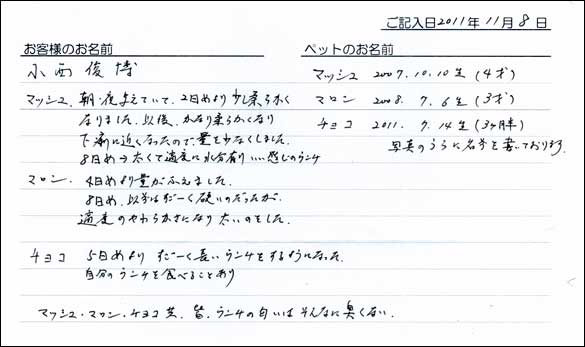 ご記入日2011年 11月 8日
お客様のお名前
ペットのお名前
小西 俊博
マッシュ 2007.10.10生 (4才)
マロン 2008. 7. 6生 (3才)
チョコ 2011. 7.14生 (3ヶ月半)
写真のうらに名前を書いております。
マッシュ. 朝・夜与えていて、2日めより少し柔らかく
なりました. 以後、かなり柔らかくなり
下痢に近くなったので、量を少なくしました。
8日め→太くて適度に水分有り いい感じのウンチ
マロン. 4日めより量がふえました.
8日め、以前はすごーく硬いのだったが、
適度のやわらかさになり太いのをした。
チョコ 5日めより すごーく長いウンチをするようになった.
自分のウンチを食べることあり
マッシュ・マロン・チヨコ共、皆、ウンチの匂いはそんなに臭くない.